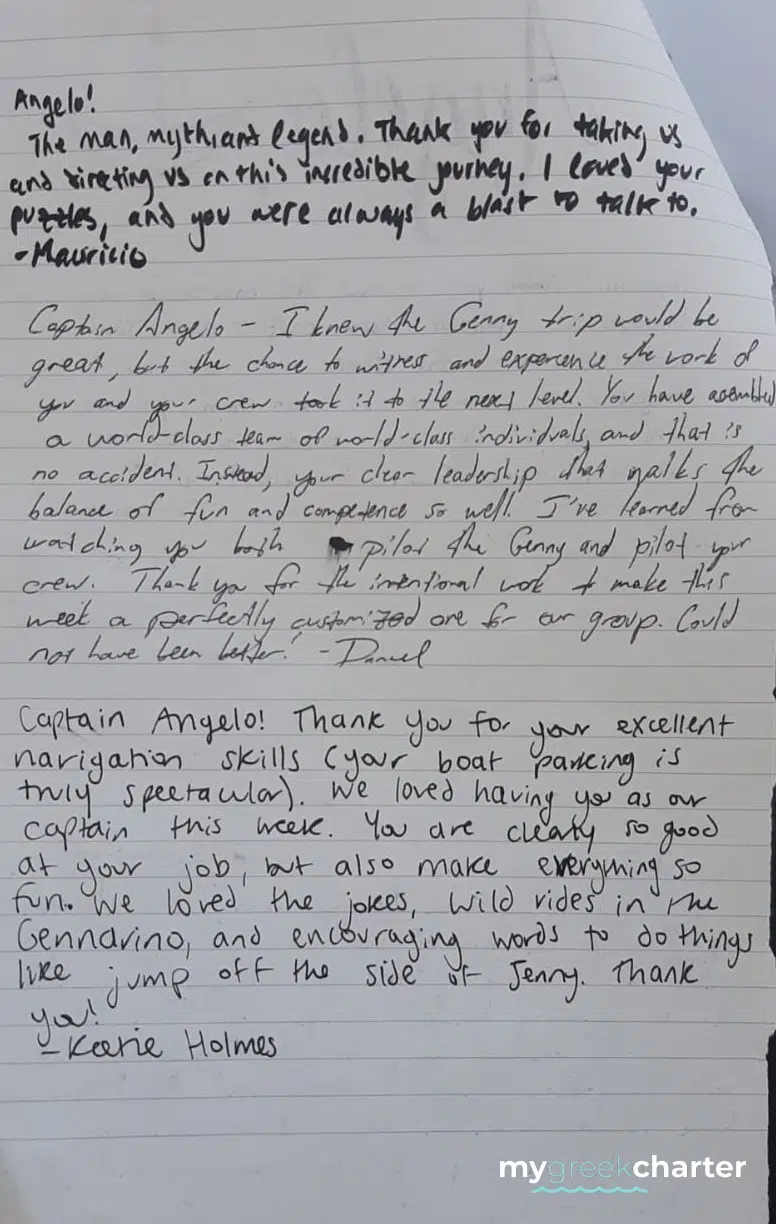 Angelo!
The man, myth, and legend. Thank you for taking us
and directing us on this incredible journey. I loved your
puzzles, and you were always a blast to talk to.
-Mauricio
Captain Angelo - I knew the Genny trip would be
great, but the chance to witness and experience the work of
you and your crew took it to the next level. You have assembled
a world-class team of world-class individuals, and that is
no accident. Instead, your clear leadership that walks the
balance of fun and competence so well. I've learned from
watching you both pilot the Genny and pilot your
crew. Thank you for the intentional work to make this
week a perfectly customized one for our group. Could
not have been better! - Daniel
Captain Angelo! Thank you for your excellent
navigation skills (your boat parking is
truly spectacular). We loved having you as our
captain this week. You are clearly so good
at your job, but also make everything so
fun. We loved the jokes, wild rides in the
Gennarino, and encouraging words to do things
like jump off the side of Jenny. Thank
you!
- Katie Holmes
mygreekcharter